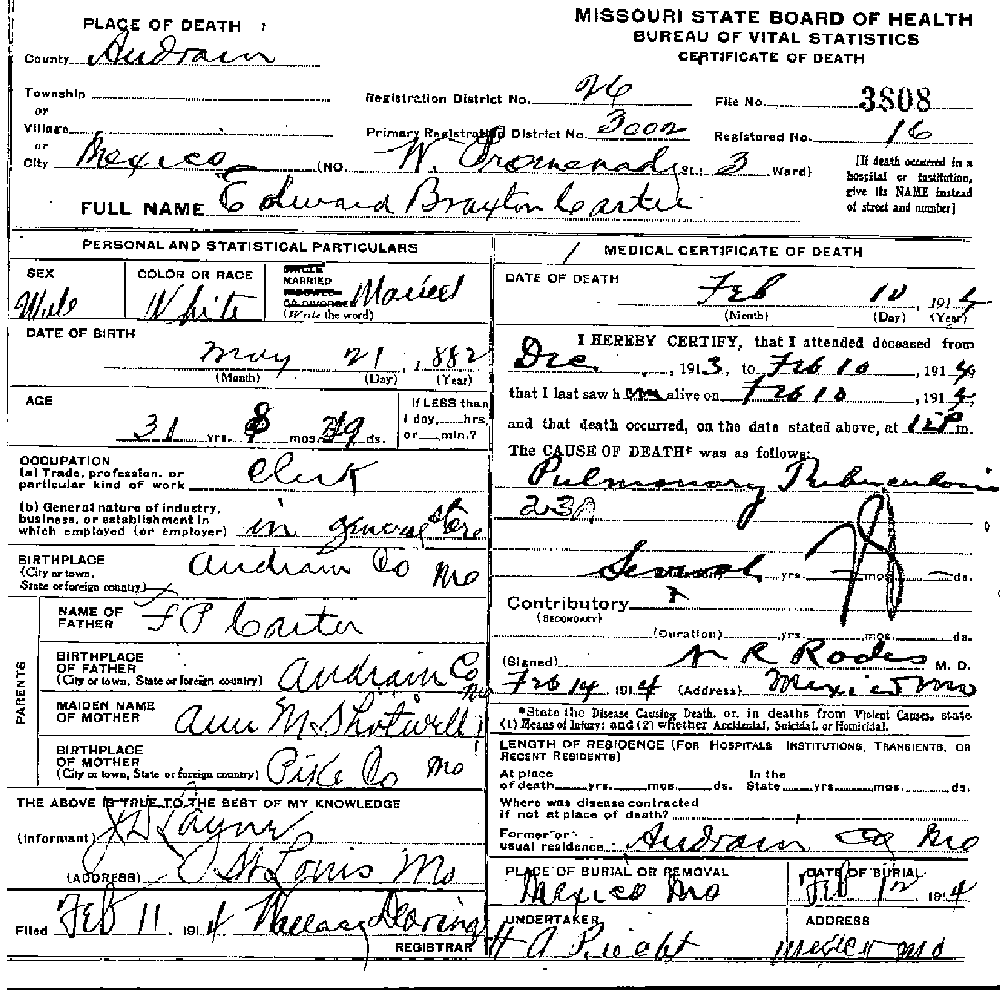 MISSOURI STATE BOARD OF HEALTH
BUREAU OF VITAL STATISTICS
CERTIFICATE OF DEATH
PLACE OF DEATH
County Audrain
Township
or
Village
or
City Mexico (NO. W. Promenade St. 3 Ward)
Registration District No. 26 File No. 3808
Primary Registration District No. 3002 Registered No. 16
[If death occurred in a
hospital or institution,
give its NAME instead
of street and number]
FULL NAME Edward Braxton Carter
PERSONAL AND STATISTICAL PARTICULARS
SEX Male
COLOR OR RACE White
SINGLE
MARRIED
WIDOWED
OR DIVORCED
(Write the word)
Married
DATE OF BIRTH
May 21, 1882
(Month) (Day) (Year)
AGE
31 yrs. 8 mos. 19 ds.
If LESS than
1 day, hrs.
or min.?
OCCUPATION
(a) Trade, profession, or
particular kind of work Clerk
(b) General nature of industry,
business, or establishment in
which employed (or employer) in general store
BIRTHPLACE
(City or town,
State or foreign country) Audrain Co Mo
PARENTS
NAME OF
FATHER F P Carter
BIRTHPLACE
OF FATHER
(City or town, State or foreign country) Audrain Co Mo
MAIDEN NAME
OF MOTHER Ann M Shotwell
BIRTHPLACE
OF MOTHER
(City or town, State or foreign country) Pike Co Mo
THE ABOVE IS TRUE TO THE BEST OF MY KNOWLEDGE
(Informant)
(ADDRESS) St Louis Mo
Filed Feb 11 1914 Wallace Dearing
REGISTRAR
MEDICAL CERTIFICATE OF DEATH
DATE OF DEATH
Feb 10 1914
(Month) (Day) (Year)
I HEREBY CERTIFY, that I attended deceased from
Dec, 1913, to Feb 10, 1914,
that I last saw him alive on Feb 10, 1914,
and that death occurred, on the date stated above, at m.
The CAUSE OF DEATH* was as follows:
Pulmonary Tuberculosis
23A
Several yrs. mos. ds.
Contributory
(SECONDARY)
(Duration) yrs. mos. ds.
(Signed) N R Rodes M. D.
Feb 14 1914 (Address) Mexico Mo
*State the Disease Causing Death, or, in deaths from Violent Causes, state
(1) Means of Injury; and (2) whether Accidental, Suicidal, or Homicidal.
LENGTH OF RESIDENCE (FOR HOSPITALS INSTITUTIONS, TRANSIENTS, OR
RECENT RESIDENTS)
At place
of death yrs. mos. ds.
In the
State yrs. mos. ds.
Where was disease contracted
if not at place of death?
Former or
usual residence Audrain Co Mo
PLACE OF BURIAL OR REMOVAL
Mexico Mo
DATE OF BURIAL
Feb 12 1914
UNDERTAKER
ADDRESS
Mexico Mo